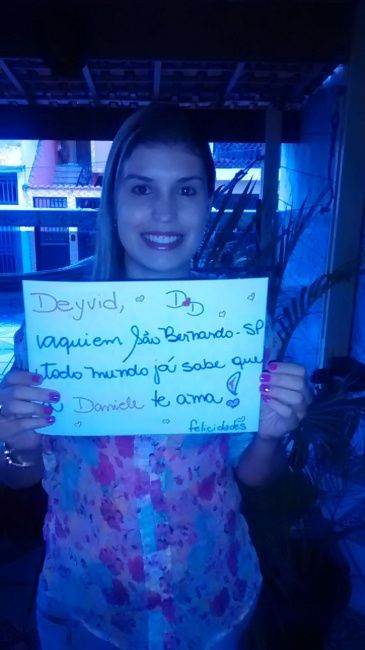 Deyvid, D D
aqui em São Bernardo-SP
todo mundo já sabe que
a Daniele te ama!
felicidades